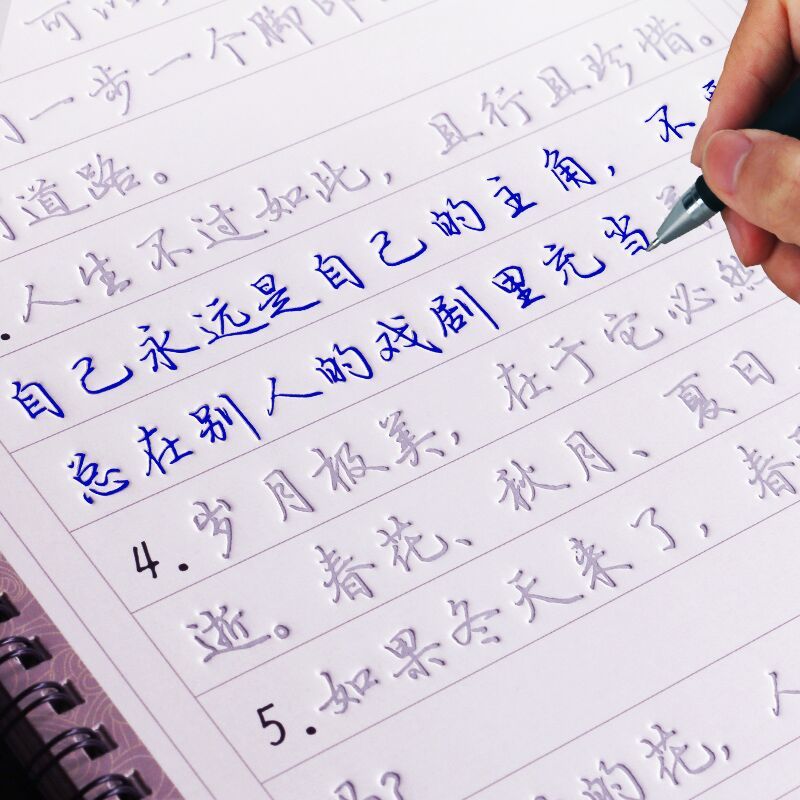 可以
一步一个脚印
道路。
人生不过如此，且行且珍惜。
自己永远是自己的主角，不
总在别人的戏剧里充当
4. 岁月极美，在于它必然
逝。春花、秋月、夏日、
5. 如果冬天来了，春
的花，人